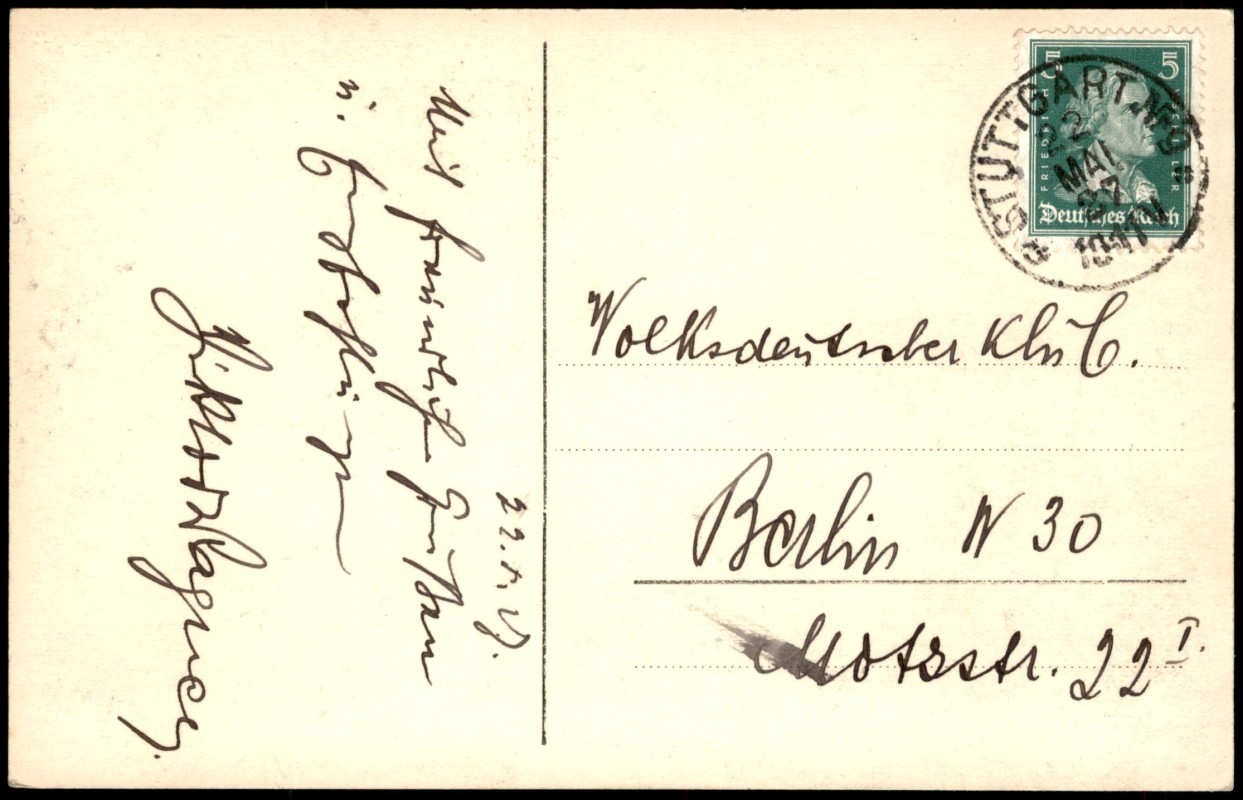 22.5.27.
Mit freundlichen Grüßen
u.
Viktor Wagner.
5 5
FRIEDRICH
Deutsches Reich
STUTTGART. No 9
22
MAI
27
10-11
Volksdeutscher Klub.
Berlin W 30
Motzstr. 22 I.